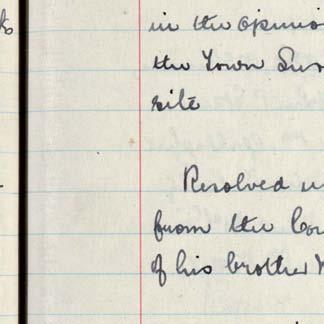 in the opinio
the Town Sur
site
Resolved u
from the Cor
of his brother